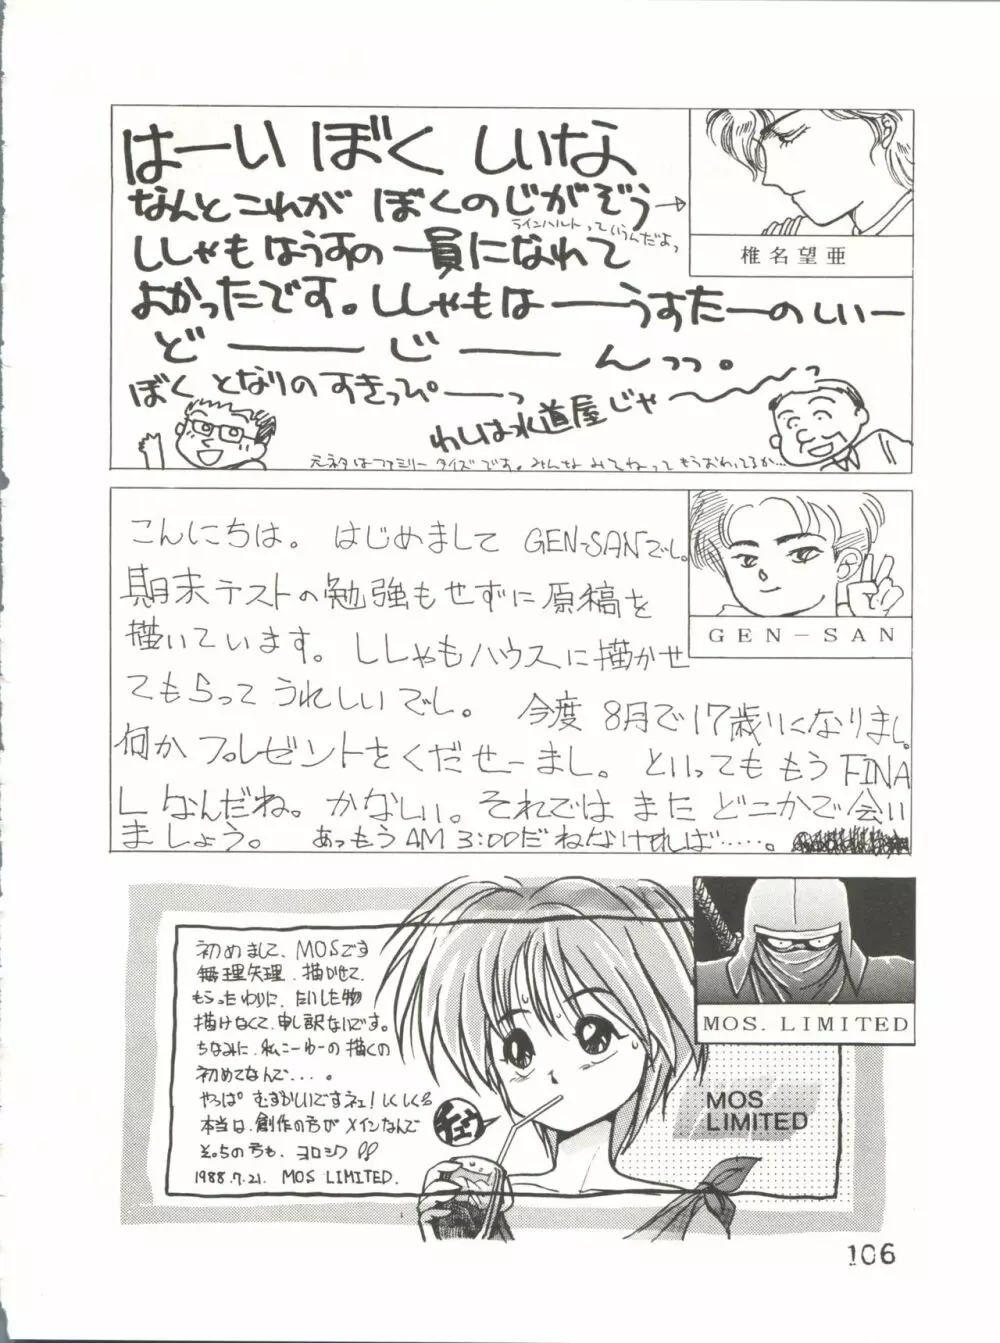 はーい ぼく しいな
なんとこれが ぼくのじがぞう→
ラインハルトっていうんだよっ
ししゃもはうすの一員になれて
よかったです。ししゃもは――うすたーのしいー
ど――じ――んっっ。
ぼく となりの すきっぴ――っ
わしは水道屋じゃ～～っ
元ネタはファミリータイズです。みんな みてねって もうおわってるか…
椎名望亜
こんにちは。 はじめまして GEN-SANでし。
期末テストの勉強もせずに原稿を
描いています。ししゃもハウスに描かせ
てもらって うれしいでし。 今度 8月で17歳りになりまし。
何か プレゼントをくだせーまし。 といっても もう FINA
L なんだね。かなしい。それでは また どこかで会い
ましょう。 あっもうAM 3:00だ ねなければ……。
GEN-SAN
初めまして、MOSです
無理矢理、描かせて、
もらったわりに、たいした物
描けなくて、申し訳ないです。
ちなみに、私こーゆーの描くの
初めてなんで....。
やっぱ むずかしいですネェ! しくしく
本当は、創作の方が メインなんで
そっちの方も、ヨロシク
1988.7.21. MOS LIMITED.
MOS. LIMITED
MOS
LIMITED
106